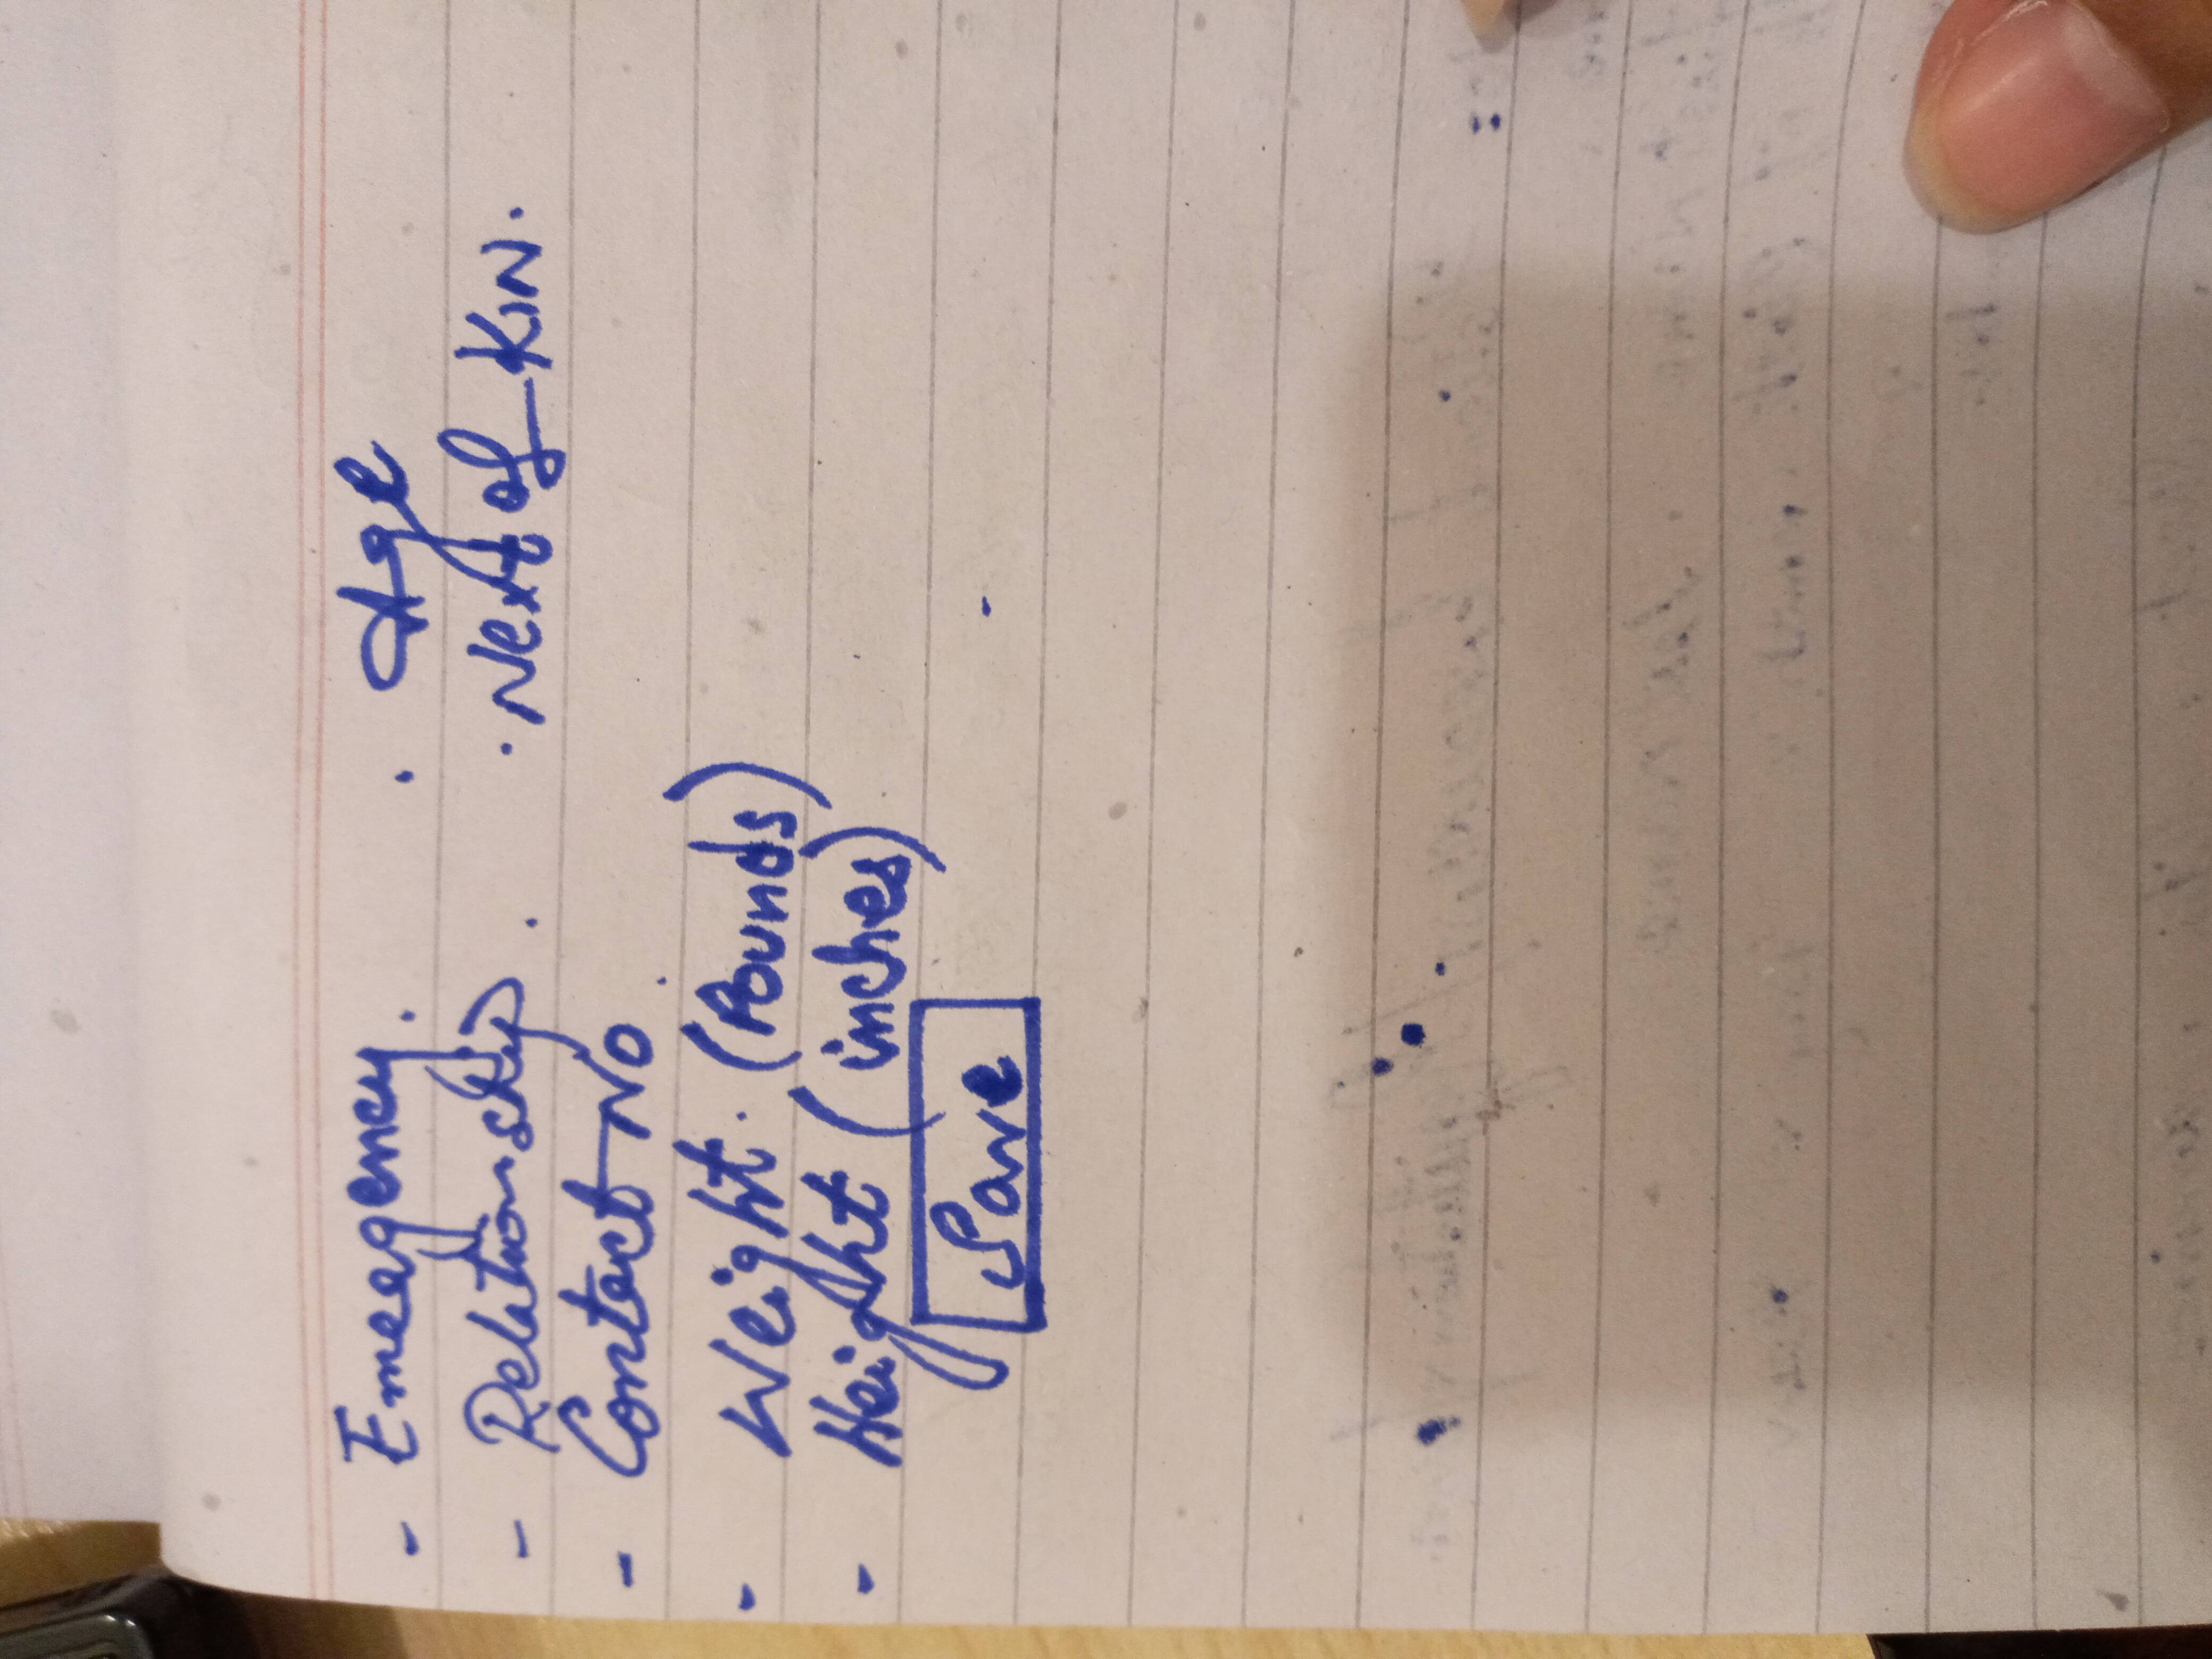 - Emergency. . Age
- Relationship . . Next of Kin.
- Contact No
- Weight. (Pounds)
- Height (inches)
Save